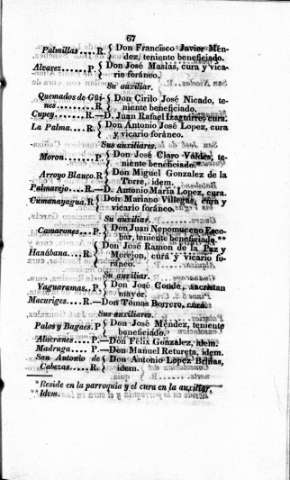 67
Palmillas.... R. { Don Francisco Javier Mén-
dez, teniente beneficiado.
Alvarez...... P. { Don José Masias, cura y vica-
rio foráneo.
Su auxiliar.
Quemados de Güi- { Don Cirilo José Nicado, te-
nes............ { niente beneficiado.
Cupey........ R.—D. Juan Rafael Izaguirre, cura.
La Palma..... R. { Don Antonio José Lopez, cura
y vicario foráneo.
Sus auxiliares.
Moron........ P. { Don José Claro Valdes, te-
niente beneficiado.
Arroyo Blanco. R { Don Miguel Gonzalez de la
Torre, idem.
Palmarejo.... R.—D. Antonio Maria Lopez, cura.
Cumanayagua, R. { Don Mariano Villegas, cura y
vicario foráneo.
Su auxiliar.
Camarones.... P. { Don Juan Nepomuceno Esco-
bar, teniente beneficiado. **
Hanábana..... R. { Don José Ramon de la Paz y
Morejon, cura y vicario fo-
raneo.
Su auxiliar.
Yaguaramas, P. { Don José Conde, sacristan
mayor.
Macuriges.... R.—Don Tomas Borrero, cura.
Sus auxiliares.
Palos y Bagaes. P { Don José Méndez, teniente
beneficiado.
Alacranes.... P.—Don Felix González, idem.
Madruga..... P.—Don Manuel Retureta, idem.
San Antonio de { Don Antonio Lopez
Cabezas..... R. { idem.
* Reside en la parroquia y el cura en la auxiliar.
** Idem.